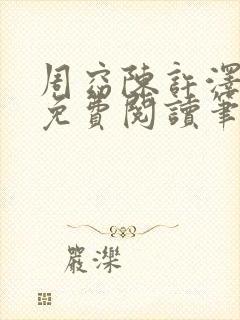 周窈陳許澤
免費閱讀筆
嚴濼